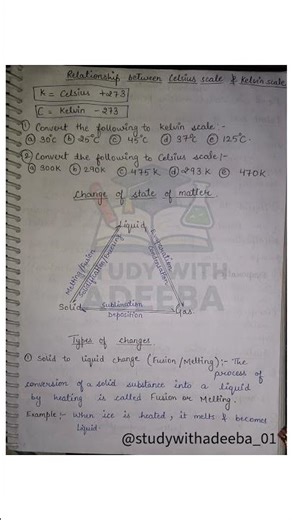 Relationship between Celsius scale & Kelvin scale
K = Celsius + 273
C = Kelvin - 273
① Convert the following to Kelvin scale :-
ⓐ 30°C ⓑ 25°C ⓒ 45°C ⓓ 37°C ⓔ 125°C
② Convert the following to Celsius scale :-
ⓐ 300K ⓑ 290K ⓒ 475K ⓓ 293K ⓔ 470K
Change of state of matter
Liquid
Melting/fusion
Solidification/freezing
Condensation
Solid
Sublimation
Deposition
Gas
STUDY WITH
ADEEBA
Types of changes
① Solid to liquid change (Fusion/Melting) :- The
process of
conversion of a solid substance into a liquid
by heating is called Fusion or Melting.
Example :- When ice is heated, it melts & becomes
liquid.
@studywithadeeba_01